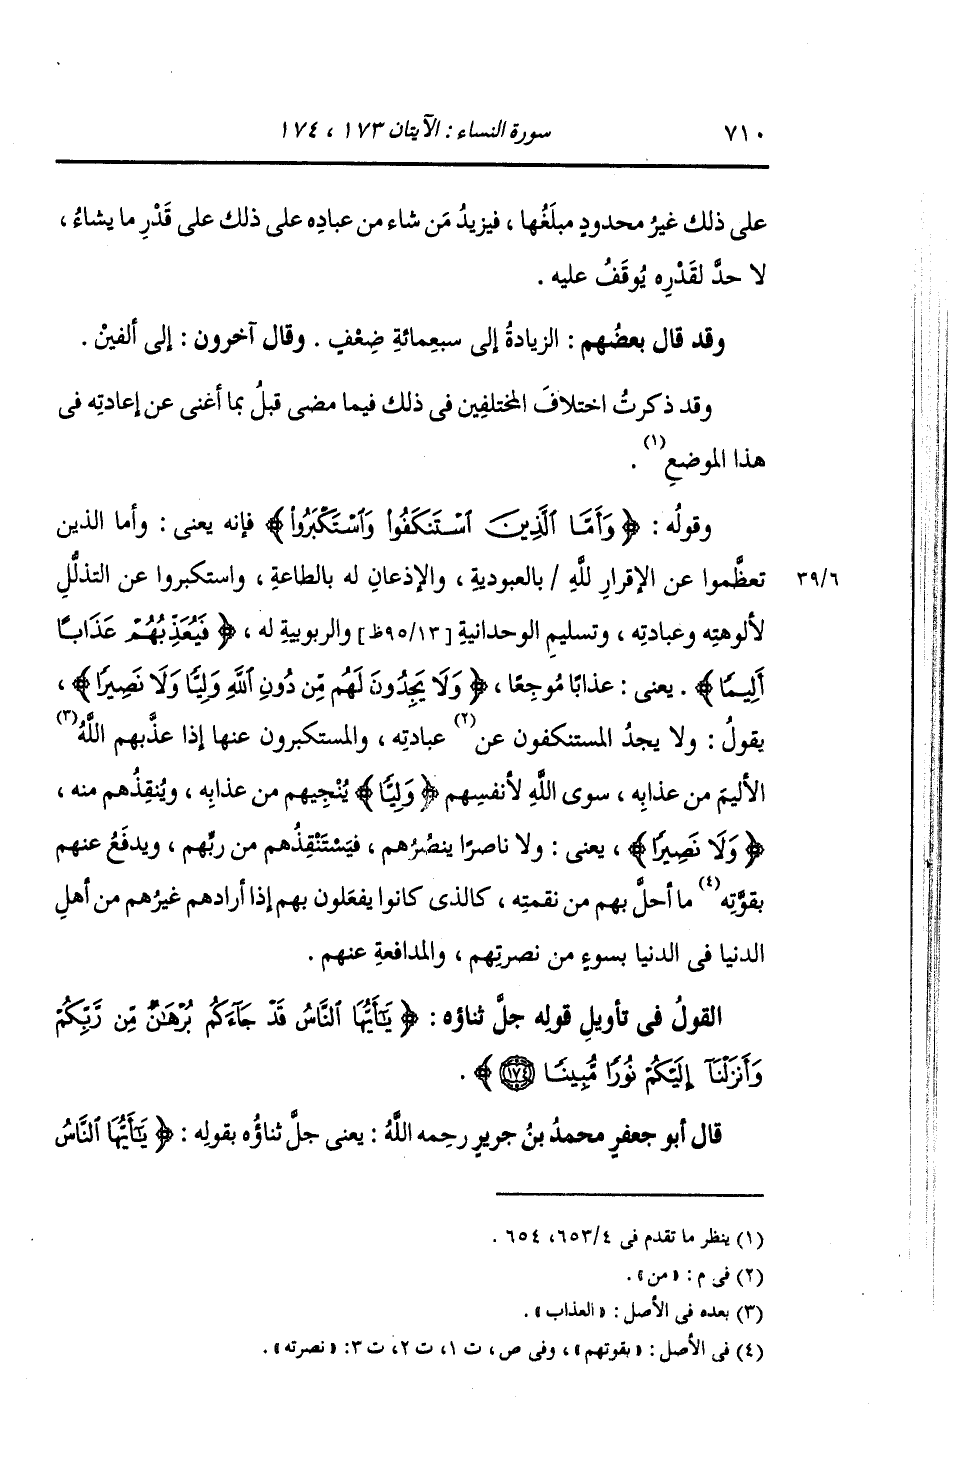 ٧١٠ سورة النساء : الآيتان ١٧٣ ، ١٧٤
على ذلك غيرُ محدودٍ مبلَغُها ، فيزيدُ مَن شاء من عبادِه على ذلك على قَدْرِ ما يشاءُ ،
لا حدَّ لقَدْرِه يُوقَفُ عليه .
وقد قال بعضُهم : الزيادةُ إلى سبعِمائةِ ضِعْفٍ . وقال آخرون : إلى ألفينْ .
وقد ذكرتُ اختلافَ المختلفِين فى ذلك فيما مضى قبلُ بما أغنى عن إعادتِه فى
هذا الموضعِ(١) .
وقولُه : ﴿ وَأَمَّا ٱلَّذِينَ ٱسْتَنكَفُوا۟ وَٱسْتَكْبَرُوا۟ ﴾ فإنه يعنى : وأما الذين
تعظَّموا عن الإقرارِ للَّهِ / بالعبوديةِ ، والإذعانِ له بالطاعةِ ، واستكبروا عن التذلُّلِ ٣٩/٦
لألوهتِه وعبادتِه ، وتسليمِ الوحدانيةِ [٩٥/١٣ظ] والربوبيةِ له ، ﴿ فَيُعَذِّبُهُمْ عَذَابًا
أَلِيمًا ﴾ . يعنى : عذابًا مُوجعًا ، ﴿ وَلَا يَجِدُونَ لَهُم مِّن دُونِ ٱللَّهِ وَلِيًّا وَلَا نَصِيرًا ﴾ ،
يقولُ : ولا يجدُ المستنكفون عن(٢) عبادتِه ، والمستكبرون عنها إذا عذَّبهم اللَّهُ(٣)
الأليمَ من عذابِه ، سوى اللَّهِ لأنفسِهم ﴿ وَلِيًّا ﴾ يُنْجِيهم من عذابِه ، ويُنقِذُهم منه ،
﴿ وَلَا نَصِيرًا ﴾ ، يعنى : ولا ناصرًا ينصُرُهم ، فيَسْتَنْقِذُهم من ربِّهم ، ويدفَعُ عنهم
بقوَّتِه(٤) ما أحلَّ بهم من نقمتِه ، كالذى كانوا يفعَلون بهم إذا أرادهم غيرُهم من أهلِ
الدنيا فى الدنيا بسوءٍ من نصرتِهم ، والمدافعةِ عنهم .
القولُ فى تأويلِ قولِه جلَّ ثناؤه : ﴿ يَٰٓأَيُّهَا ٱلنَّاسُ قَدْ جَآءَكُم بُرْهَٰنٌ مِّن رَّبِّكُمْ
وَأَنزَلْنَآ إِلَيْكُمْ نُورًا مُّبِينًا ١٧٤ ﴾ .
قال أبو جعفرٍ محمدُ بنُ جريرٍ رحِمه اللَّهُ : يعنى جلَّ ثناؤُه بقولِه : ﴿ يَٰٓأَيُّهَا ٱلنَّاسُ
(١) ينظر ما تقدم فى ٦٥٣/٤، ٦٥٤ .
(٢) فى م : «من» .
(٣) بعده فى الأصل : «العذاب» .
(٤) فى الأصل : «بقوتهم» ، وفى ص ، ت ١، ت ٢، ت ٣: «نصرته» .